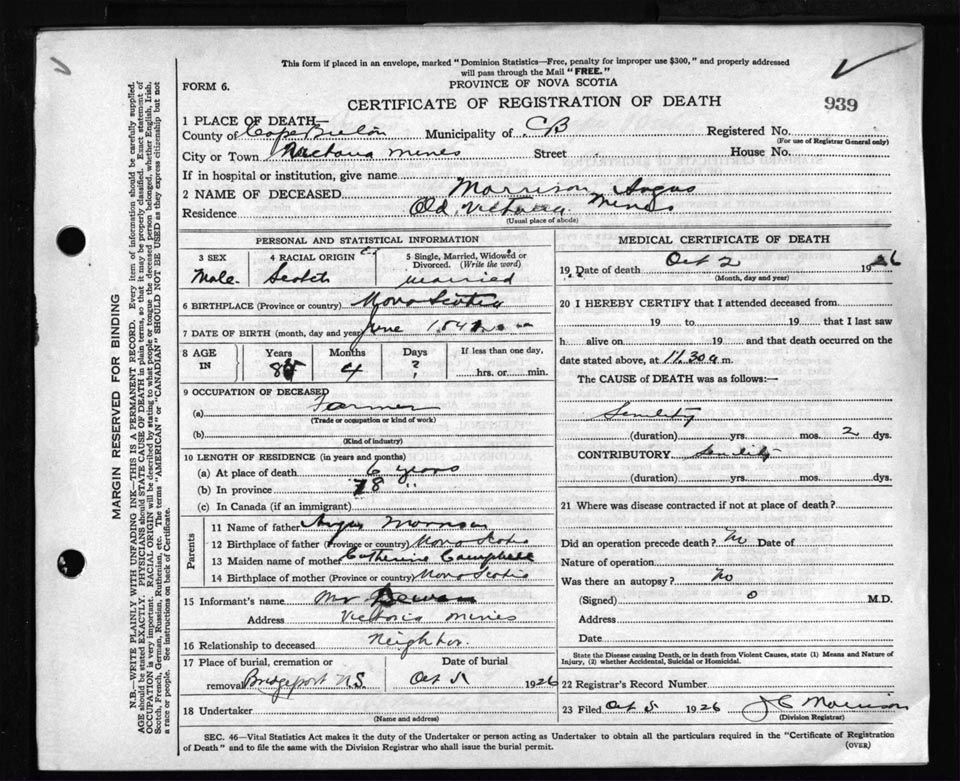 This form if placed in an envelope, marked "Dominion Statistics—Free, penalty for improper use $300," and properly addressed
will pass through the Mail "FREE."
FORM 6.
PROVINCE OF NOVA SCOTIA
CERTIFICATE OF REGISTRATION OF DEATH
939
1 PLACE OF DEATH—
County of Cape Breton Municipality of CB Registered No.
(For use of Registrar General only)
City or Town Victoria Mines Street House No.
If in hospital or institution, give name
2 NAME OF DECEASED Morrison Angus
Residence Old Victoria Mines
(Usual place of abode)
PERSONAL AND STATISTICAL INFORMATION
3 SEX 4 RACIAL ORIGIN 5 Single, Married, Widowed or Divorced. (Write the word)
Male Scotch married
6 BIRTHPLACE (Province or country) Nova Scotia
7 DATE OF BIRTH (month, day and year) June
8 AGE IN Years Months Days If less than one day,
4 ? hrs. or min.
9 OCCUPATION OF DECEASED
(a) Farmer
(Trade or occupation or kind of work)
(b)
(Kind of industry)
10 LENGTH OF RESIDENCE (in years and months)
(a) At place of death 6 years
(b) In province 78 "
(c) In Canada (if an immigrant)
Parents
11 Name of father Angus Morrison
12 Birthplace of father (Province or country) Nova Scotia
13 Maiden name of mother Catherine Campbell
14 Birthplace of mother (Province or country) Nova Scotia
15 Informant's name Mr
Address Victoria Mines
16 Relationship to deceased Neighbor.
17 Place of burial, cremation or removal Bridgeport N.S. Date of burial Oct 1926
18 Undertaker
(Name and address)
MEDICAL CERTIFICATE OF DEATH
19 Date of death Oct 2 1926
(Month, day and year)
20 I HEREBY CERTIFY that I attended deceased from
19 to 19 that I last saw
h alive on 19 and that death occurred on the
date stated above, at 11.30 a m.
The CAUSE of DEATH was as follows:—
Senility
(duration) yrs. mos. 2 dys.
CONTRIBUTORY Senility
(duration) yrs. mos. dys.
21 Where was disease contracted if not at place of death?
Did an operation precede death? No Date of
Nature of operation
Was there an autopsy? No
(Signed) M.D.
Address
Date
State the Disease causing Death, or in death from Violent Causes, state (1) Means and Nature of
Injury, (2) whether Accidental, Suicidal or Homicidal.
22 Registrar's Record Number
23 Filed Oct 5 1926 J C Morrison
(Division Registrar)
SEC. 46—Vital Statistics Act makes it the duty of the Undertaker or person acting as Undertaker to obtain all the particulars required in the "Certificate of Registration
of Death" and to file the same with the Division Registrar who shall issue the burial permit.
(OVER)
MARGIN RESERVED FOR BINDING
N.B.—WRITE PLAINLY WITH UNFADING INK—THIS IS A PERMANENT RECORD. Every item of information should be carefully supplied.
AGE should be stated EXACTLY. PHYSICIANS should STATE CAUSE OF DEATH in plain terms, so that it may be properly classified. Exact statement of
OCCUPATION is very important. RACIAL ORIGIN will be described by stating to what people or tongue the deceased person belonged, whether English, Irish,
Scotch, French, German, Russian, Ruthenian, etc. The terms "AMERICAN" or "CANADIAN" SHOULD NOT BE USED as they express citizenship but not
a race or people. See instructions on back of Certificate.